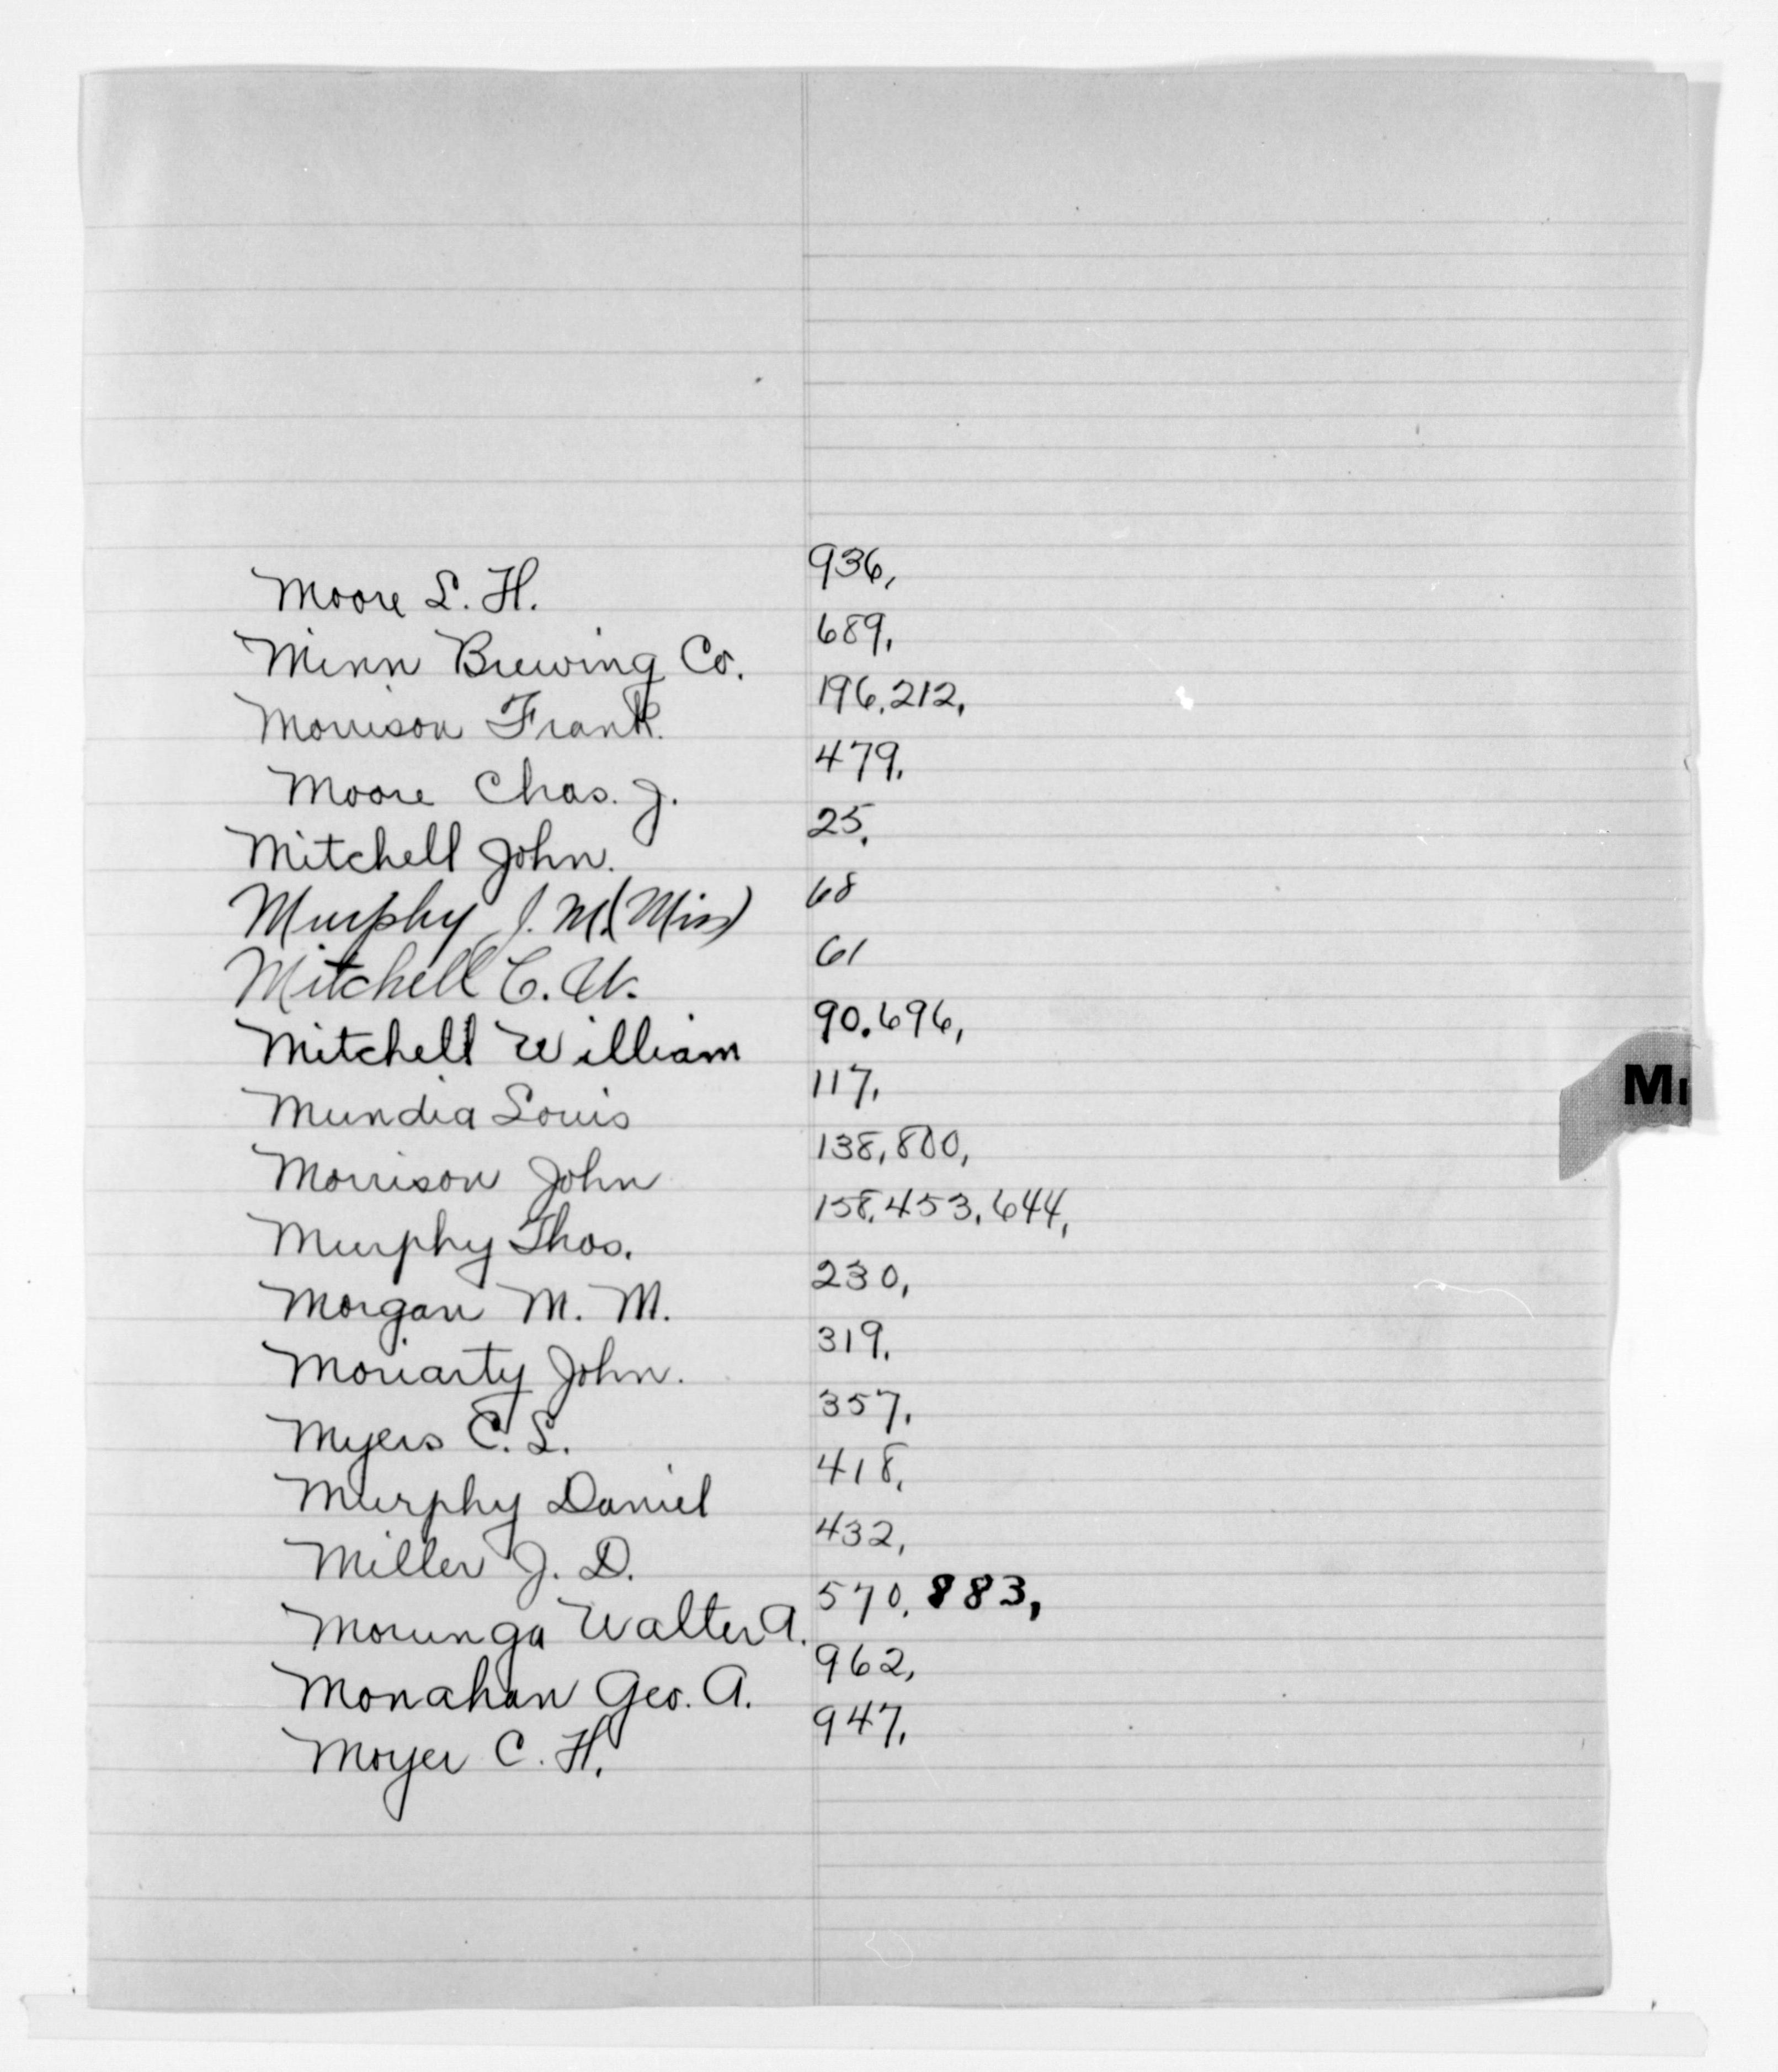 Moore L. H. 936,
Minn Brewing Co. 689,
Morrison Frank. 196,212,
Moore Chas. J. 479,
Mitchell John. 25,
Murphy, J. M. (Miss) 68
Mitchell C. W. 61
Mitchell William 90.696,
Mundia Louis 117,
Morrison John 138,800,
Murphy Thos. 158,453,644,
Morgan M. M. 230,
Moriarty John. 319,
Myers C. L. 357,
Murphy Daniel 418,
Miller J. D. 432,
Morunga Walter A. 570, 883,
Monahan Geo. A. 962,
Moyer C. H. 947,